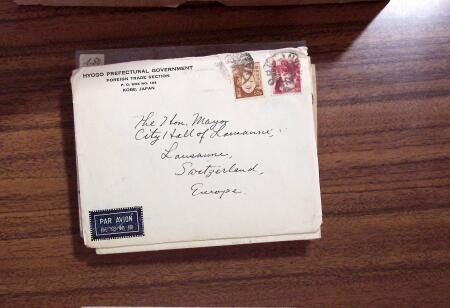 HYOGO PREFECTURAL GOVERNMENT
FOREIGN TRADE SECTION
P. O. BOX NO. 105
KOBE, JAPAN
The Hon. Mayor
City Hall of Lausanne,
Lausanne,
Switzerland,
Europe.
PAR AVION